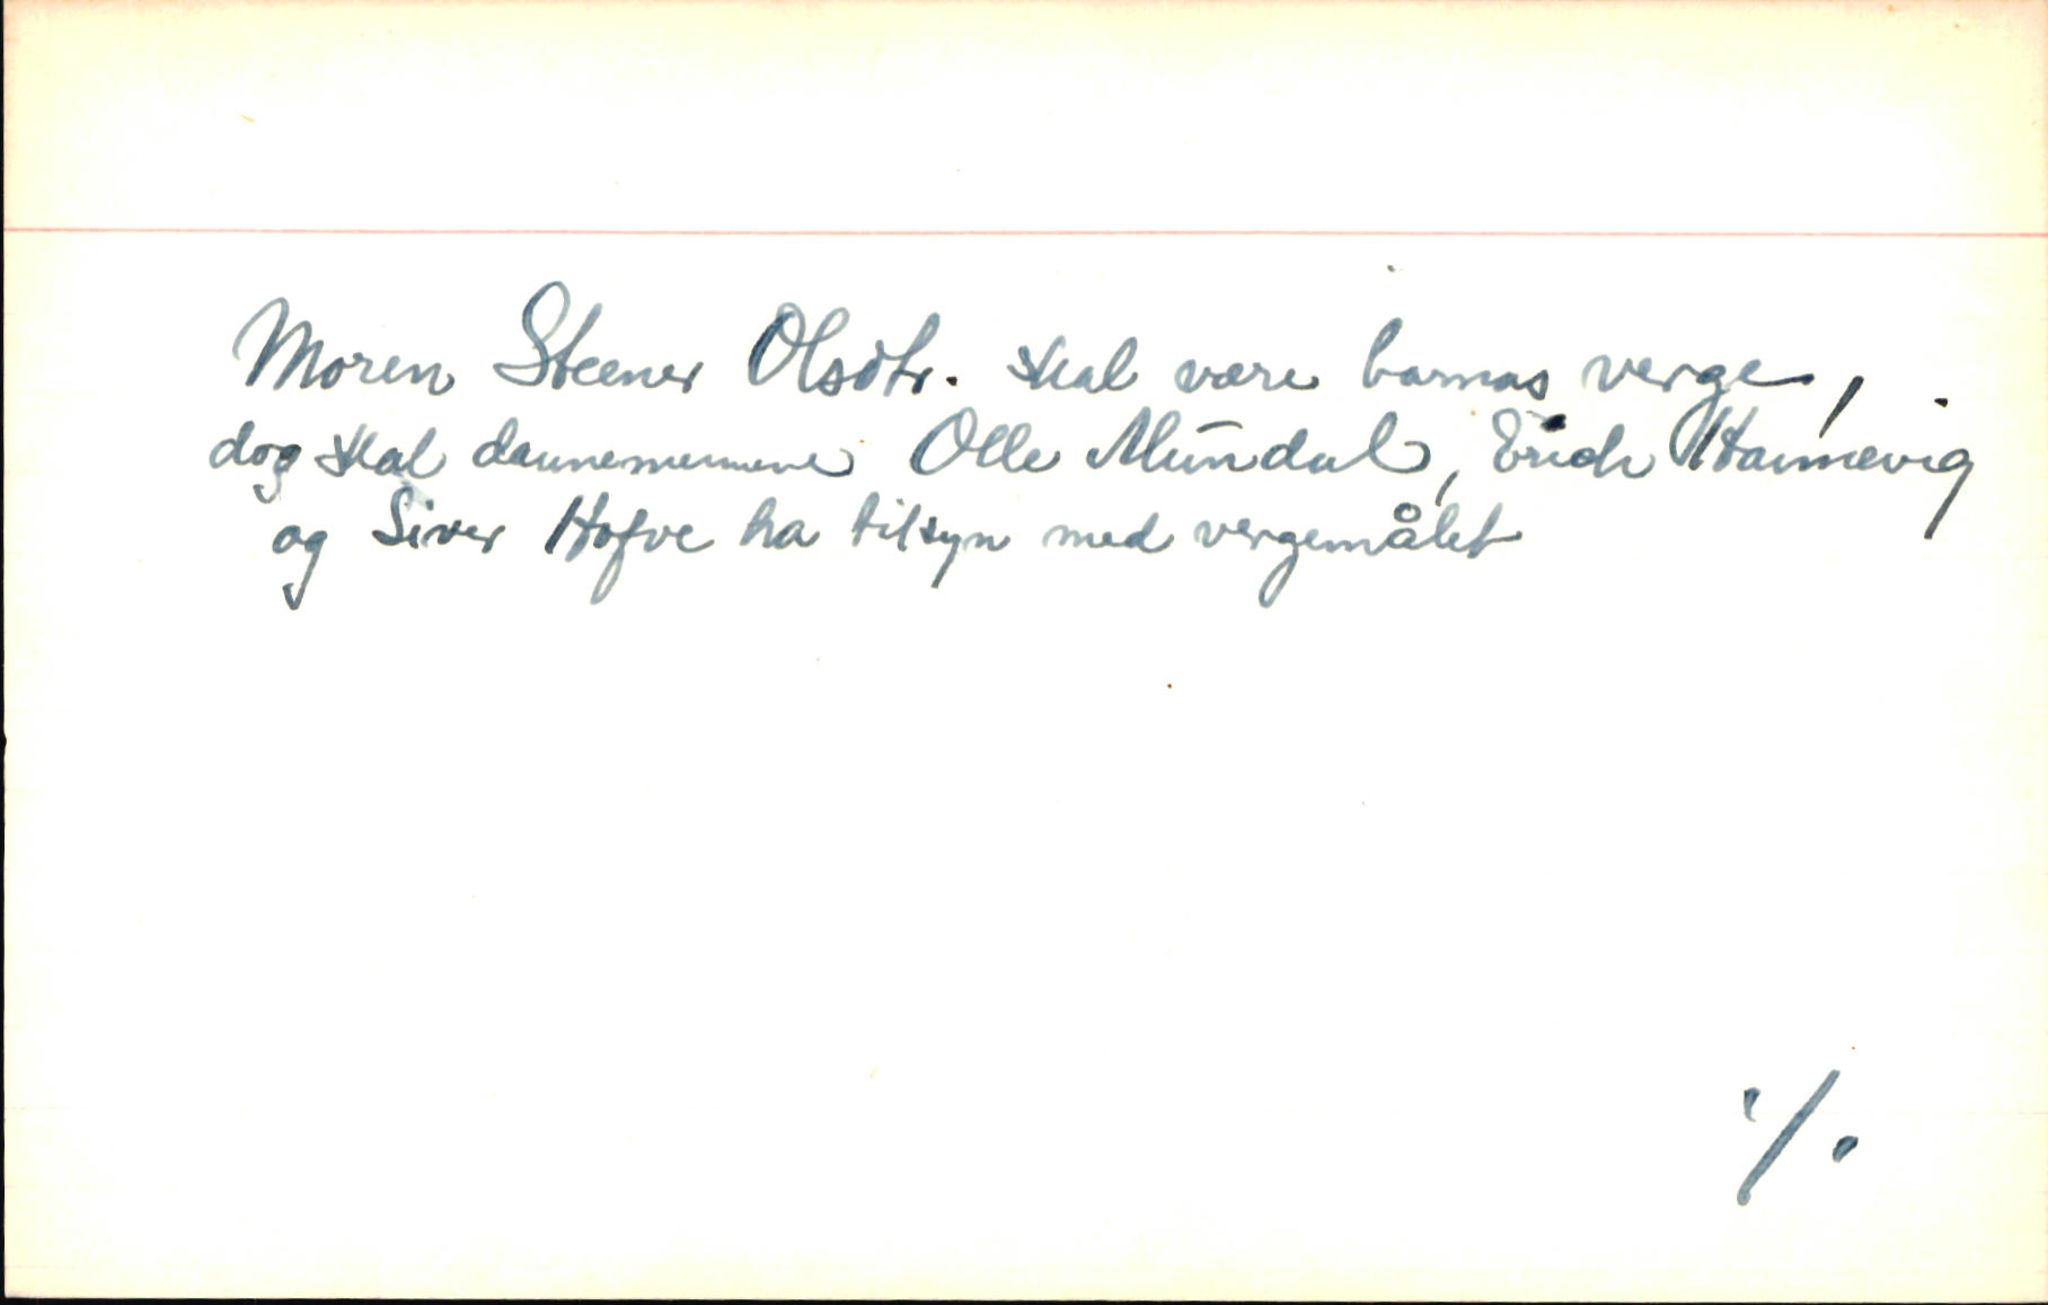 Moren Steener Olsdtr. skal være barnas verge,
dog skal dannemennene Olle Mundal, Erich Hamnevig
og Siver Hofve ha tilsyn med vergemålet
./.